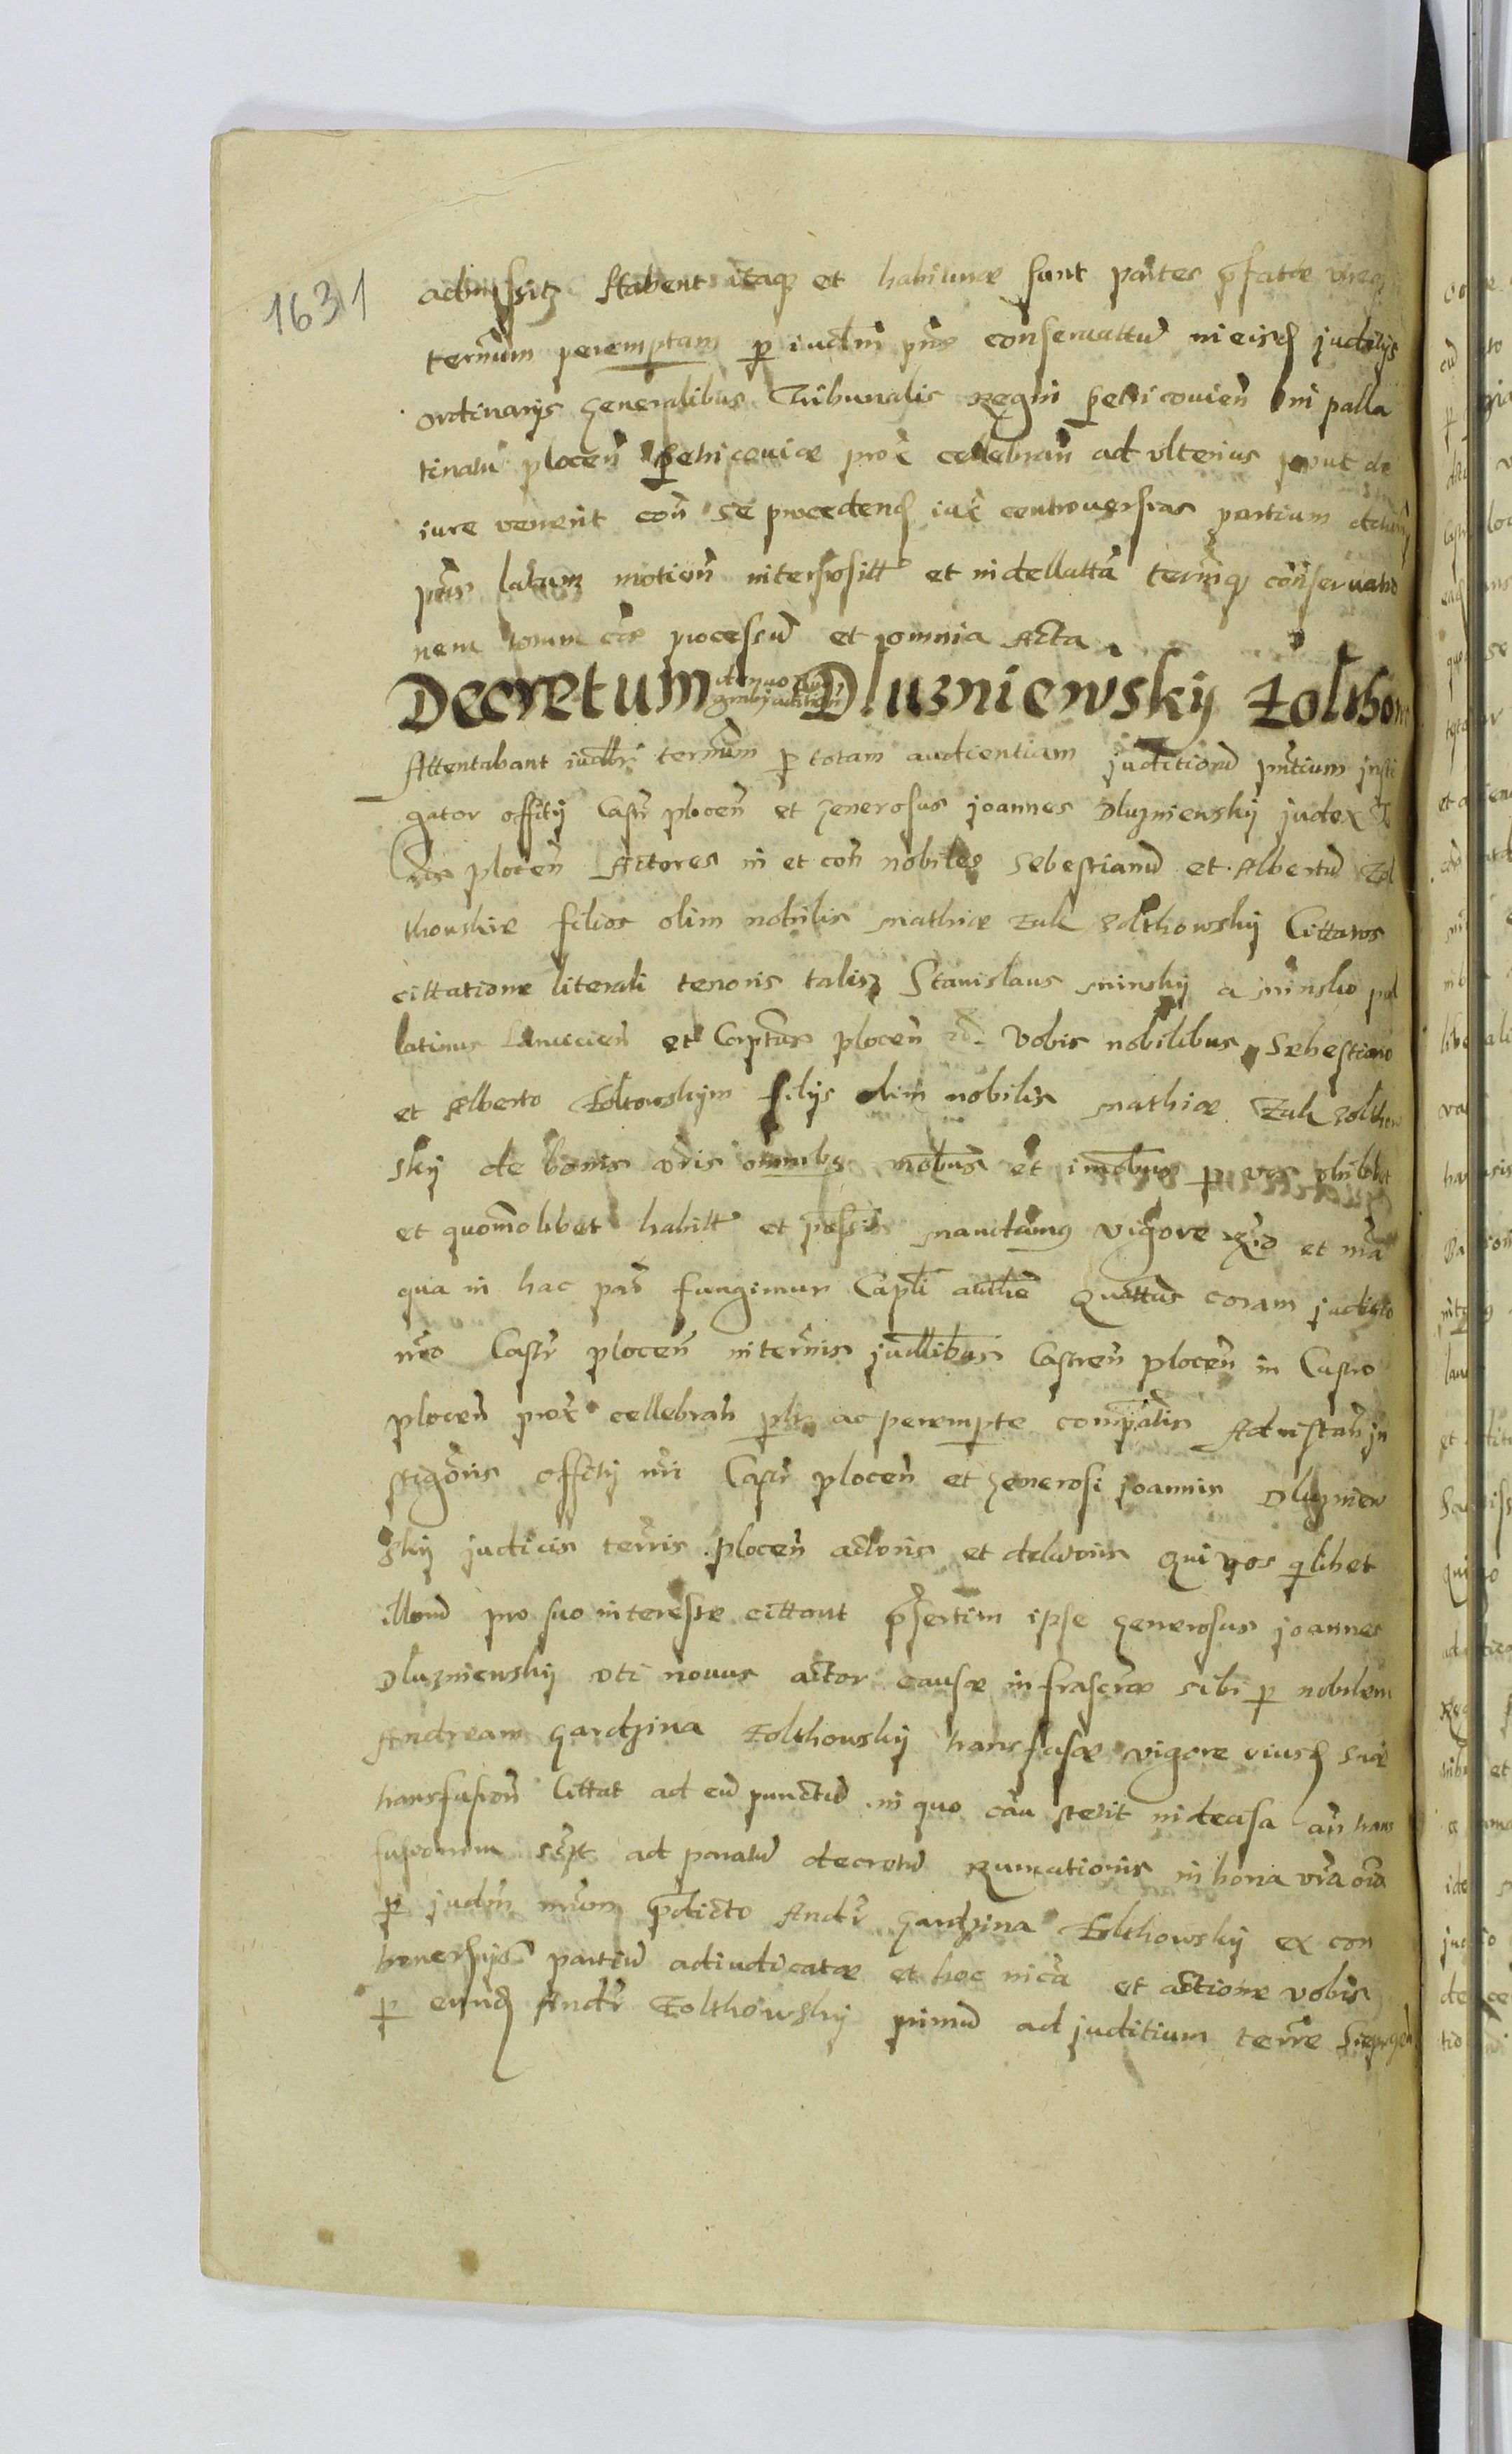 1631
admissit Habent itaq et habiturae sunt partes pfatae
termum peremptam p iudm pns conseruattu in eisd juditijs
ordinarijs generalibus Tribunalis Regni petricouien in palla
tinatu plocen petricouiae prox cellebran ad vlterius prout de
iure venerit con se procedend iux controuersias partium
pns latum motionem interposilt et in dellattã termiq conseruatio
nem totum eor processu et omnia Acta
Decretum Dluzniewskij Zolthow
Attentabant iudlr termum p totam audientiam juditioru pntium insti
gator offitij Castr plocen et generosus joannes Dluzniewskij judex Te
rris plocen Actores in et con nobiles Sebestianu et Albertu Zol
thowskie filios olim nobilis Mathiae Zuk Zolthowskij Cittatos
cittatione literali tenoris talis Stanislaus Minskij a Minsko pal
latinus Lancicien et Capitan plocen Vobis nobilibus Sebestiano
et Alberto Zoltowskijm filijs olim nobilis Mathiae Zuk Zolthow
skij de bonis vris omnibus mobus et imobus p vos vbilibet
et quomolibet habilt et possis mandamus vigore Regio et nra
qua in hac parte fungimur Capli authe Quattus coram juditio
nro Castr plocen in termis judlibus Castren plocen in Castro
plocen prox cellebran plr ac perempte compatis Ad instan in
stigoris offitij nri Castr plocen et generosi joannis Dluzniew
skij judicis terris plocen actoris et delatoris Qui vos qlibet
illoru pro suo interesse cittant psertim ipse generosus joannes
Dluzniewskij vti nouus actor causae infrascrae sibi p nobilem
Andream Gardzina Zolthowskij transfusae vigore eiusd suae
transfusion Cittat ad eu punctu in quo cau stetit indecisa an trans
fusionem scpt ad paratu decretu Rumationis in bona vra oia
p judm nrum pdicto Andr Gardzina Zolthowskij ex con
trouersijs partiu adiudicatae et hoc in cã et actione vobis
p eund Andr Zolthowskij primu ad juditium terre